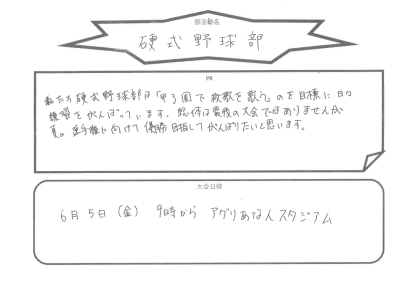 部活動名
硬式野球部
PR
私たち硬式野球部は「甲子園で校歌を歌う」のを目標に日々
練習をがんばっています。総体は最後の大会ではありませんが
夏の選手権に向けて優勝目指してがんばりたいと思います。
大会日程
6月5日(金) 9時から アグリあなんスタジアム